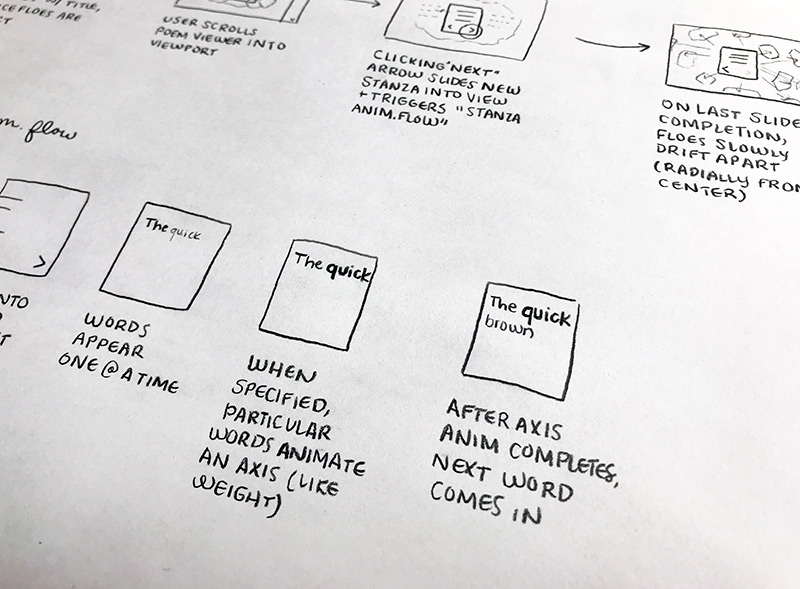 TITLE,
ICE FLOES ARE
USER SCROLLS
POEM VIEWER INTO
VIEWPORT
CLICKING "NEXT"
ARROW SLIDES NEW
STANZA INTO VIEW
+ TRIGGERS "STANZA
ANIM.FLOW"
ON LAST SLIDE
COMPLETION,
FLOES SLOWLY
DRIFT APART
(RADIALLY FROM
CENTER)
flow
The quick
WORDS
APPEAR
ONE @ A TIME
The quick
WHEN
SPECIFIED,
PARTICULAR
WORDS ANIMATE
AN AXIS (LIKE
WEIGHT)
The quick
brown
AFTER AXIS
ANIM COMPLETES,
NEXT WORD
COMES IN